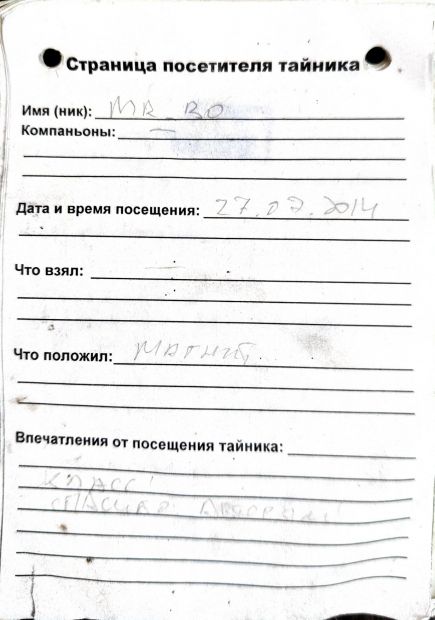 Страница посетителя тайника
Имя (ник): MR_BO
Компаньоны: —
Дата и время посещения: 27.07.2014
Что взял: —
Что положил: МАГНИТ
Впечатления от посещения тайника:
КЛАСС!
СПАСИБО